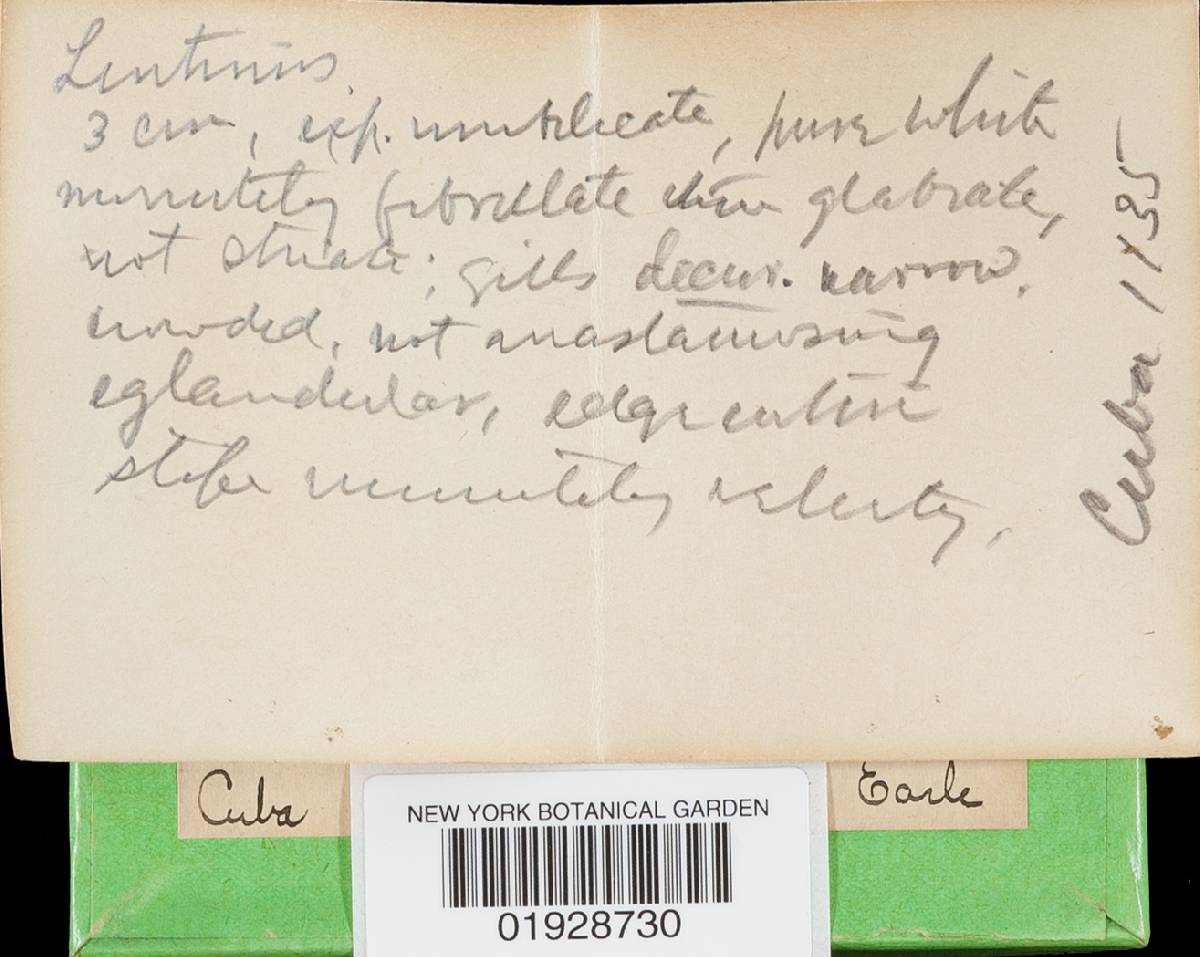 Lentinus.
3 cm, exp. umbilicate, pure white
minutely fibrillate then glabrate,
not striate; gills decur. narrow,
crowded, not anastamosing
eglandular, edge entire
stipe minutely velvety,
Cuba 1135
Cuba
Earle
NEW YORK BOTANICAL GARDEN
01928730